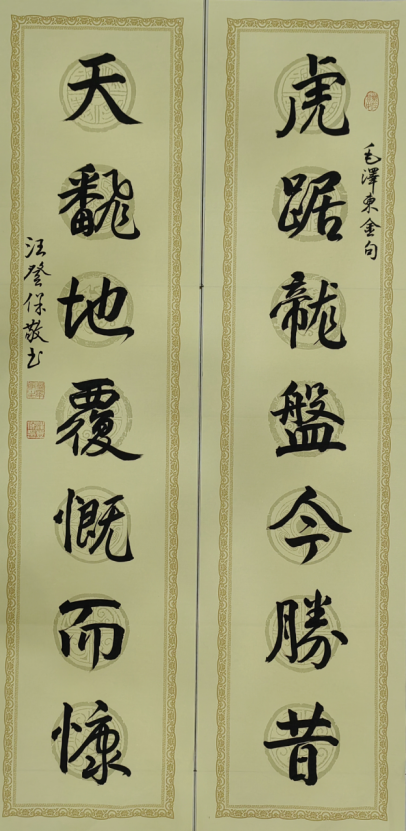 毛澤東金句
虎踞龍盤今勝昔
天翻地覆慨而慷
汪登保敬书